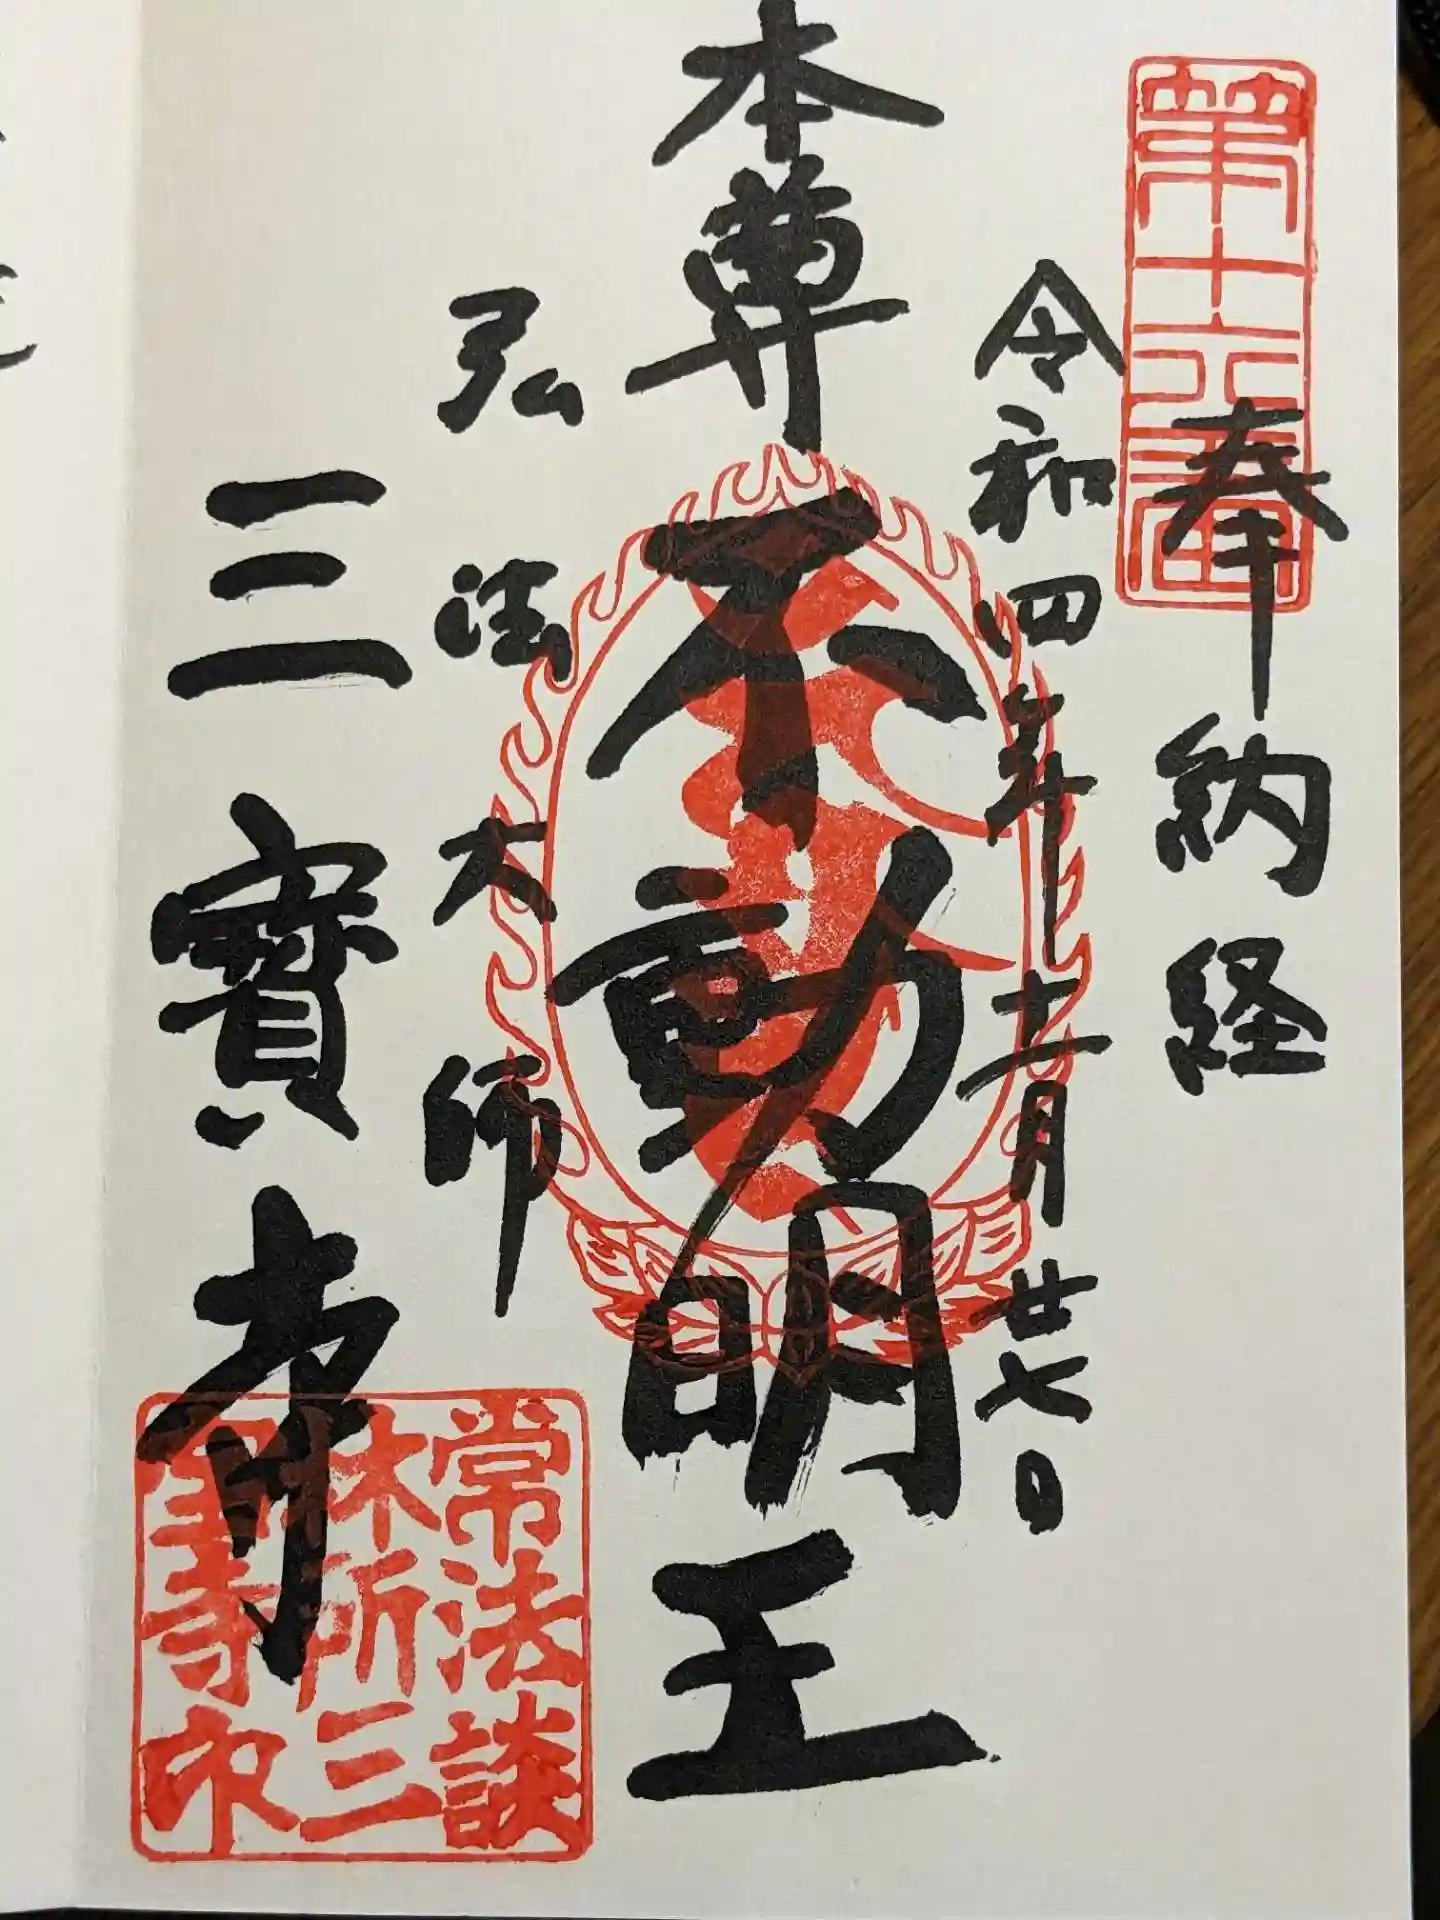 第十六番
奉納経
令和四年十一月廿七日
本尊不動明王
弘法大師
三寳寺
常法談
林所三
宝寺印